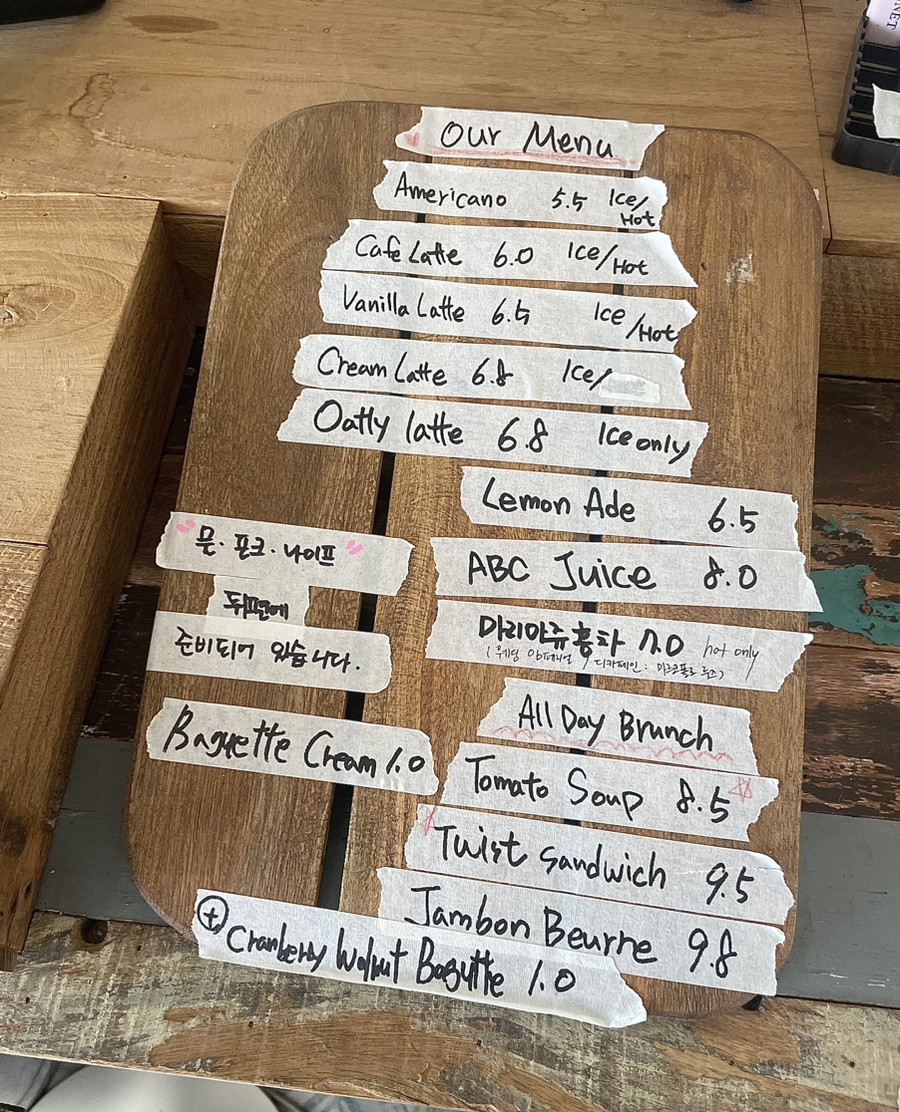 Our Menu
Americano 5.5 Ice/Hot
Cafe Latte 6.0 Ice/Hot
Vanilla Latte 6.5 Ice/Hot
Cream Latte 6.8 Ice/
Oatly latte 6.8 Ice only
Lemon Ade 6.5
ABC Juice 8.0
마리아쥬홍차 7.0 hot only
(웨딩 임페리얼 / 디카페인: 마르코폴로 루즈)
"물·포크·나이프"
뒤편에
준비되어 있습니다.
Baguette Cream 1.0
All Day Brunch
Tomato Soup 8.5
Twist Sandwich 9.5
Jambon Beurre 9.8
+ Cranberry Walnut Baguette 1.0
NET